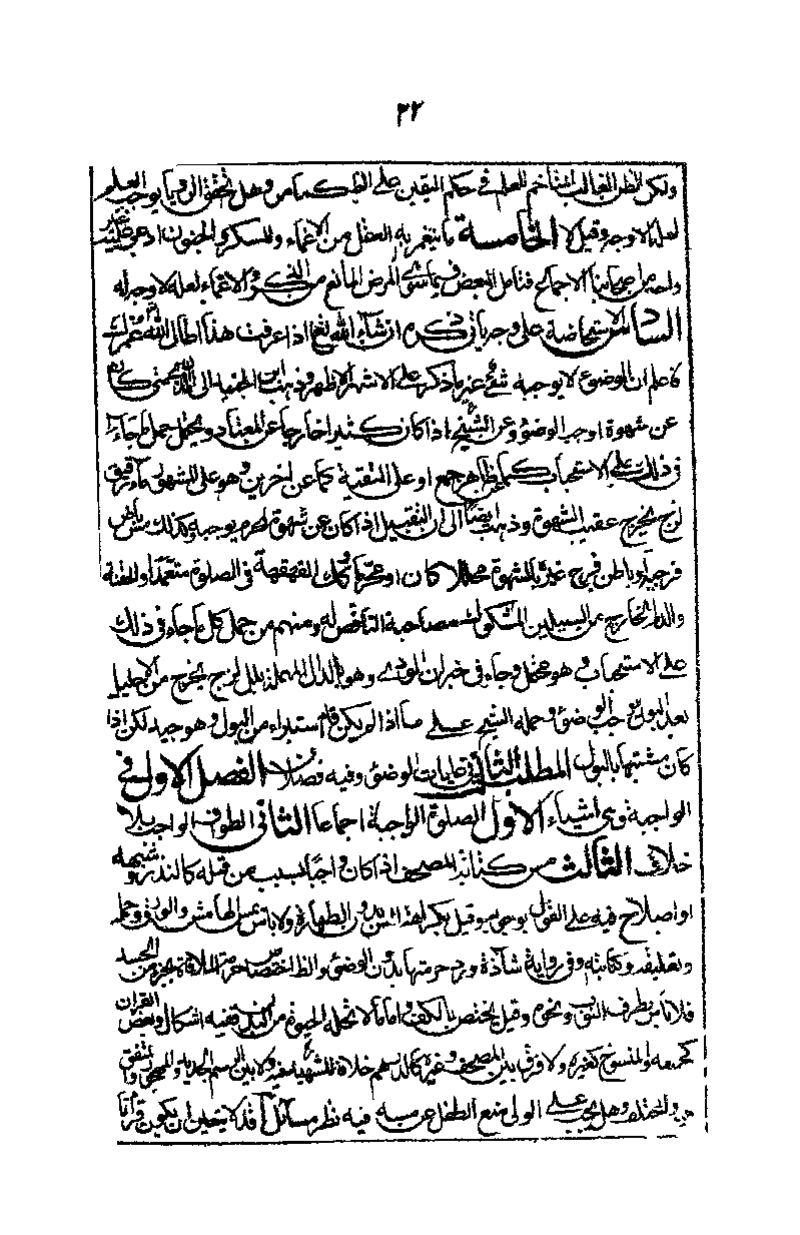 ٣٢
ولكن الظن الغالب المتاخم للعلم في حكم اليقين على الظ كما مر وهل يحقق الو فيما يوجب العلم
لعله الاوجه وقيل لا الخامسة ما يتغير به العقل من الاغماء والسكر والجنون ادعى عليه غير
واحد من اصحابنا الاجماع فتامل البعض فيما سوى المرض المانع من الذكر والاغماء لعله لا وجه له
السادس الاستحاضة على وجه ياتي ذكره انشاء الله تع اذا عرفت هذا اطال الله عمرك
فاعلم ان الوضوء لا يوجبه شئ غير ما ذكر على الاشهر الاظهر وذهب ابن الجنيد الى ان المذي
عن شهوة اوجب الوضوء وعن الشيخ اذا كان كثيرا خارجا عن المعتاد ويحتمل حمل ما جاء
في ذلك على الاستحباب كما هو ظاهر جمع او على التقية كما عن اخرين وهو على المشهور ماء رقيق
لزج يخرج عقيب الشهوة وذهب ايضا الى ان التقبيل اذا كان عن شهوة لمحرم يوجبه وكذلك مس باطن
فرجيه او باطن فرج غيره بالشهوة محللا كان او محرما وكذلك القهقهة في الصلوة متعمدا والحقنة
والدم الخارج من السبيلين المشكوك لمصاحبة الناقض له ومنهم من حمل كل ما جاء في ذلك
على الاستحباب وهو محتمل وجاء في خبر ان الودي وهو بالدال المهملة بلل لزج يخرج من الاحليل
بعد البول يوجب الوضوء وحمله الشيخ على ما اذا لم يكن قد استبراء من البول وهو جيد لكن اذا
كان مشتبها بالبول المطلب الثاني في غايات الوضوء وفيه فصلان الفصل الاول في
الواجبة وهي اشياء الاول الصلوة الواجبة اجماعا الثاني الطواف الواجب بلا
خلاف الثالث مس كتابة المصحف اذا كان واجبا بسبب من قبله كالنذر وشبهه
او اصلاح فيه على القول بوجوبه وقيل بكراهة المس بدون الطهارة ولا باس بمس الهامش والورق وحمله
وتعليقه وكتابته وفي رواية شاذة ورد حرمتها بدون الوضوء والظ اختصاص حرمة الملاقاة بجزء من الجسد
فلا باس بطرف الثوب ونحوه وقيل يختص بالكف واما ما لا تحله الحيوة من البدن ففيه اشكال وبعض القران
كجميعه والمنسوخ كغيره ولا فرق بين المصحف وغيره كالدرهم خلافا للشهيد فيه ولا بين الرسم الجديد والمهجور والمتفق
والمختلف وهل يجب على الولي منع الطفل عن مسه فيه نظر مسائل آ قد لا يتعين ان يكون قرانا